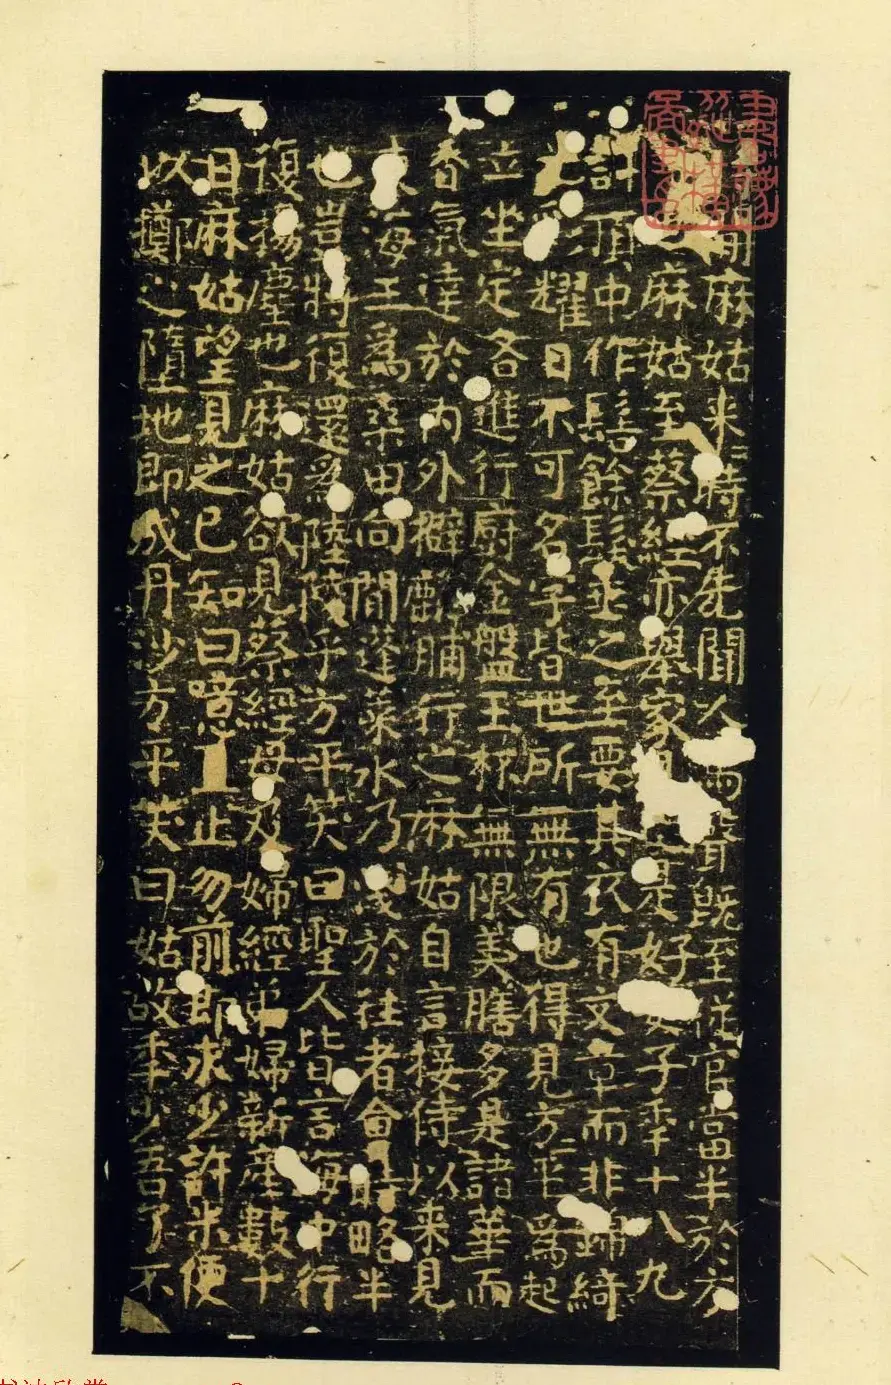 麻姑来〻時不先聞人馬聲既至從官當半於方
麻姑至蔡經亦舉家見之是好女子年十八九
許頂中作髻餘髮垂之至要其衣有文章而非錦綺
耀日不可名字皆世所無有也得見方平〻為起
立坐定各進行廚金盤玉杯無限美膳多是諸華而
香氣達於內外擗麟脯行之麻姑自言接侍以来見
東海三為桑田向間蓬萊水乃淺於往者會時略半
也豈將復還為陸陵乎方平笑曰聖人皆言海中行
復揚塵也麻姑欲見蔡經母及婦經弟婦新產數十
日麻姑望見之已知曰噫且止勿前即求少許米便
以擲之墮地即成丹沙方平笑曰姑故年少吾了不